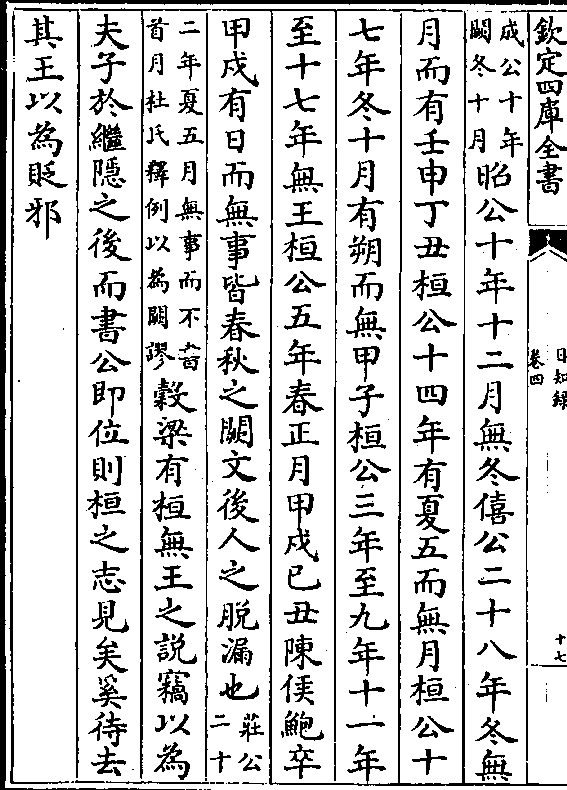 欽定四庫全書
日知錄
卷四
十七
成公十年
闕冬十月
昭公十年十二月無冬僖公二十八年冬無
月而有壬申丁丑桓公十四年有夏五而無月桓公十
七年冬十月有朔而無甲子桓公三年至九年十一年
至十七年無王桓公五年春正月甲戌已丑陳侯鮑卒
甲戌有日而無事皆春秋之闕文後人之脫漏也
莊公
二十
二年夏五月無事而不書
首月杜氏釋例以為闕謬
穀梁有桓無王之說竊以為
夫子於繼隱之後而書公即位則桓之志見矣奚待去
其王以為貶邪